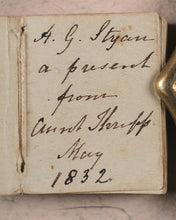 A. G. Styan
a present
from
Aunt Thrupp
May
1832